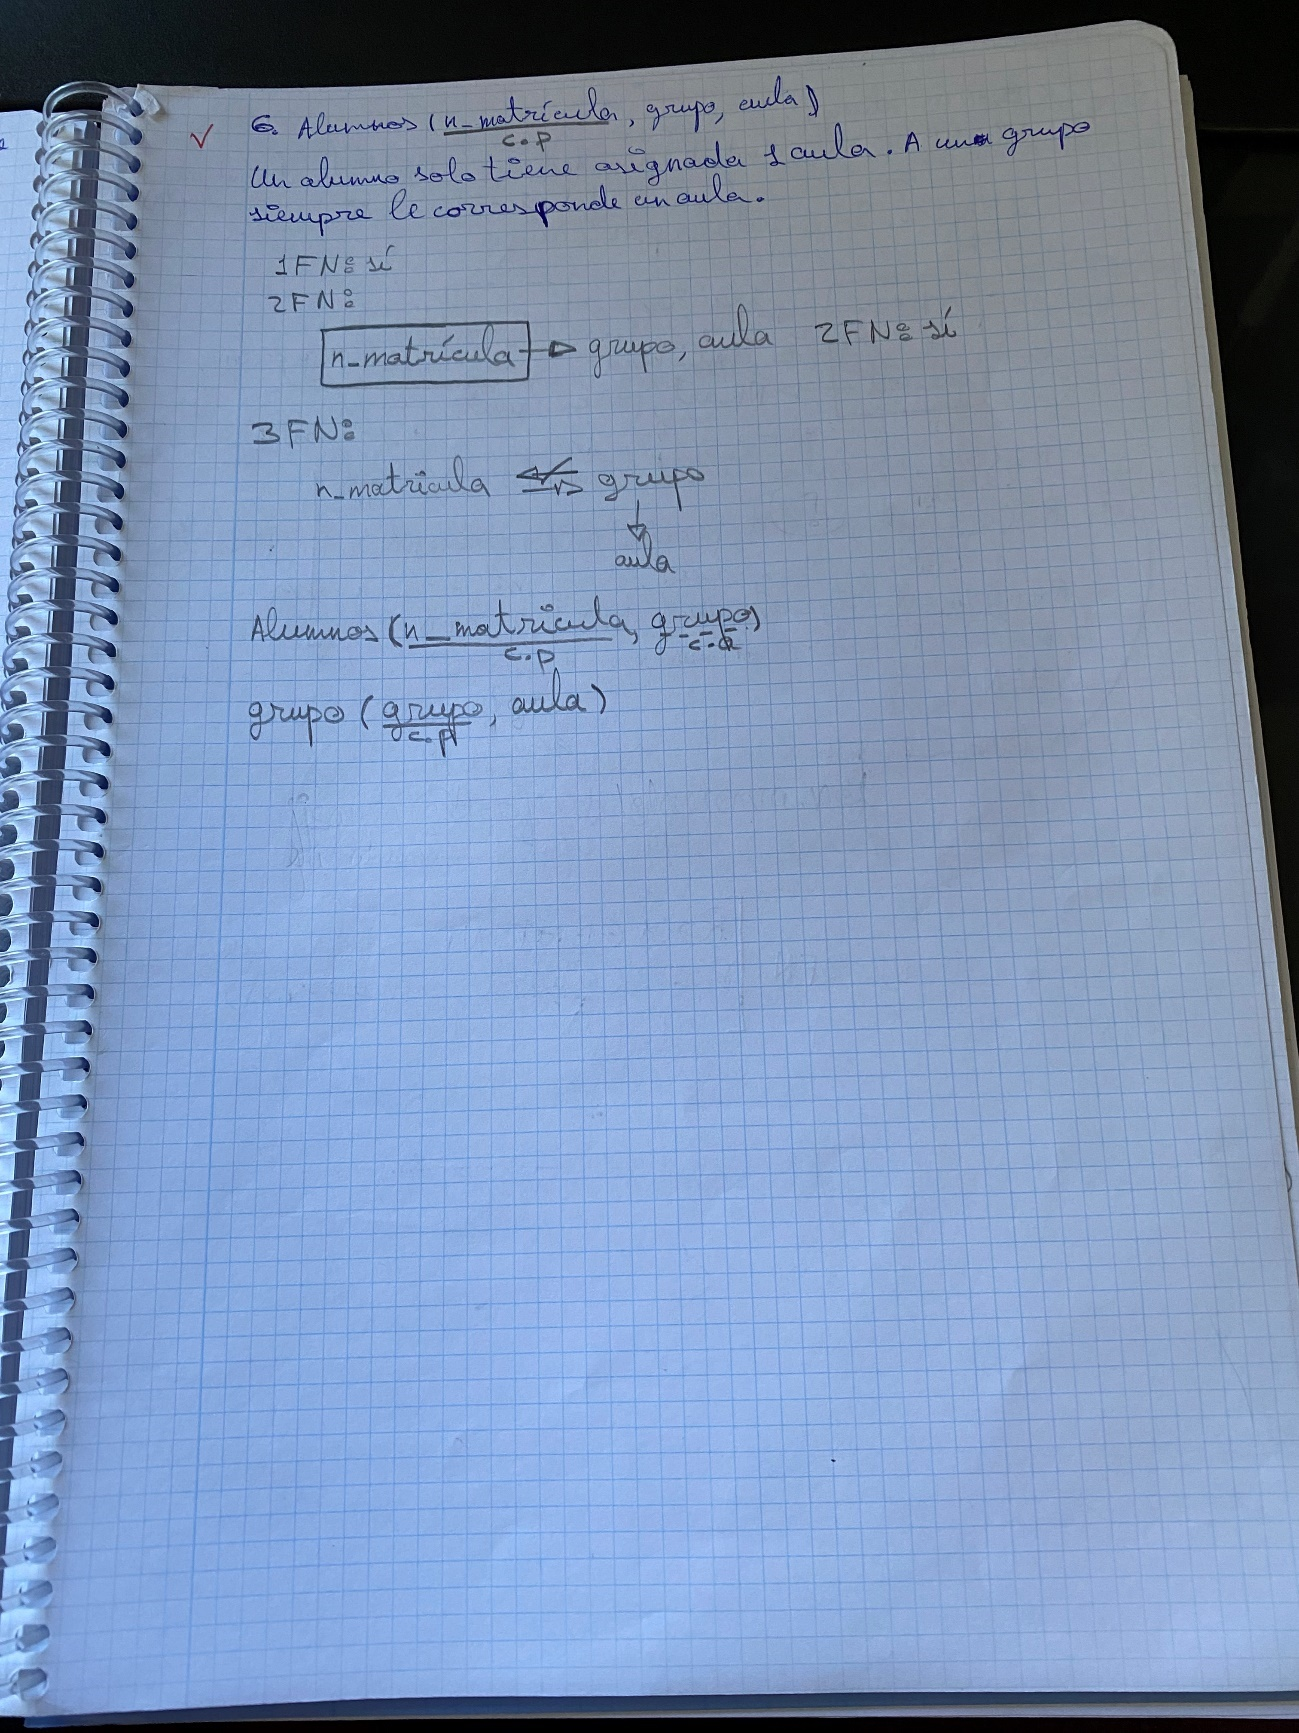 6. Alumnos (n_matrícula, grupo, aula)
c.p
Un alumno solo tiene asignada 1 aula. A un grupo
siempre le corresponde un aula.
1FN: sí
2FN:
n_matrícula → grupo, aula 2FN: sí
3FN:
n_matricula grupo
aula
Alumnos (n_matricula, grupo)
c.p c.a
grupo (grupo, aula)
c.p